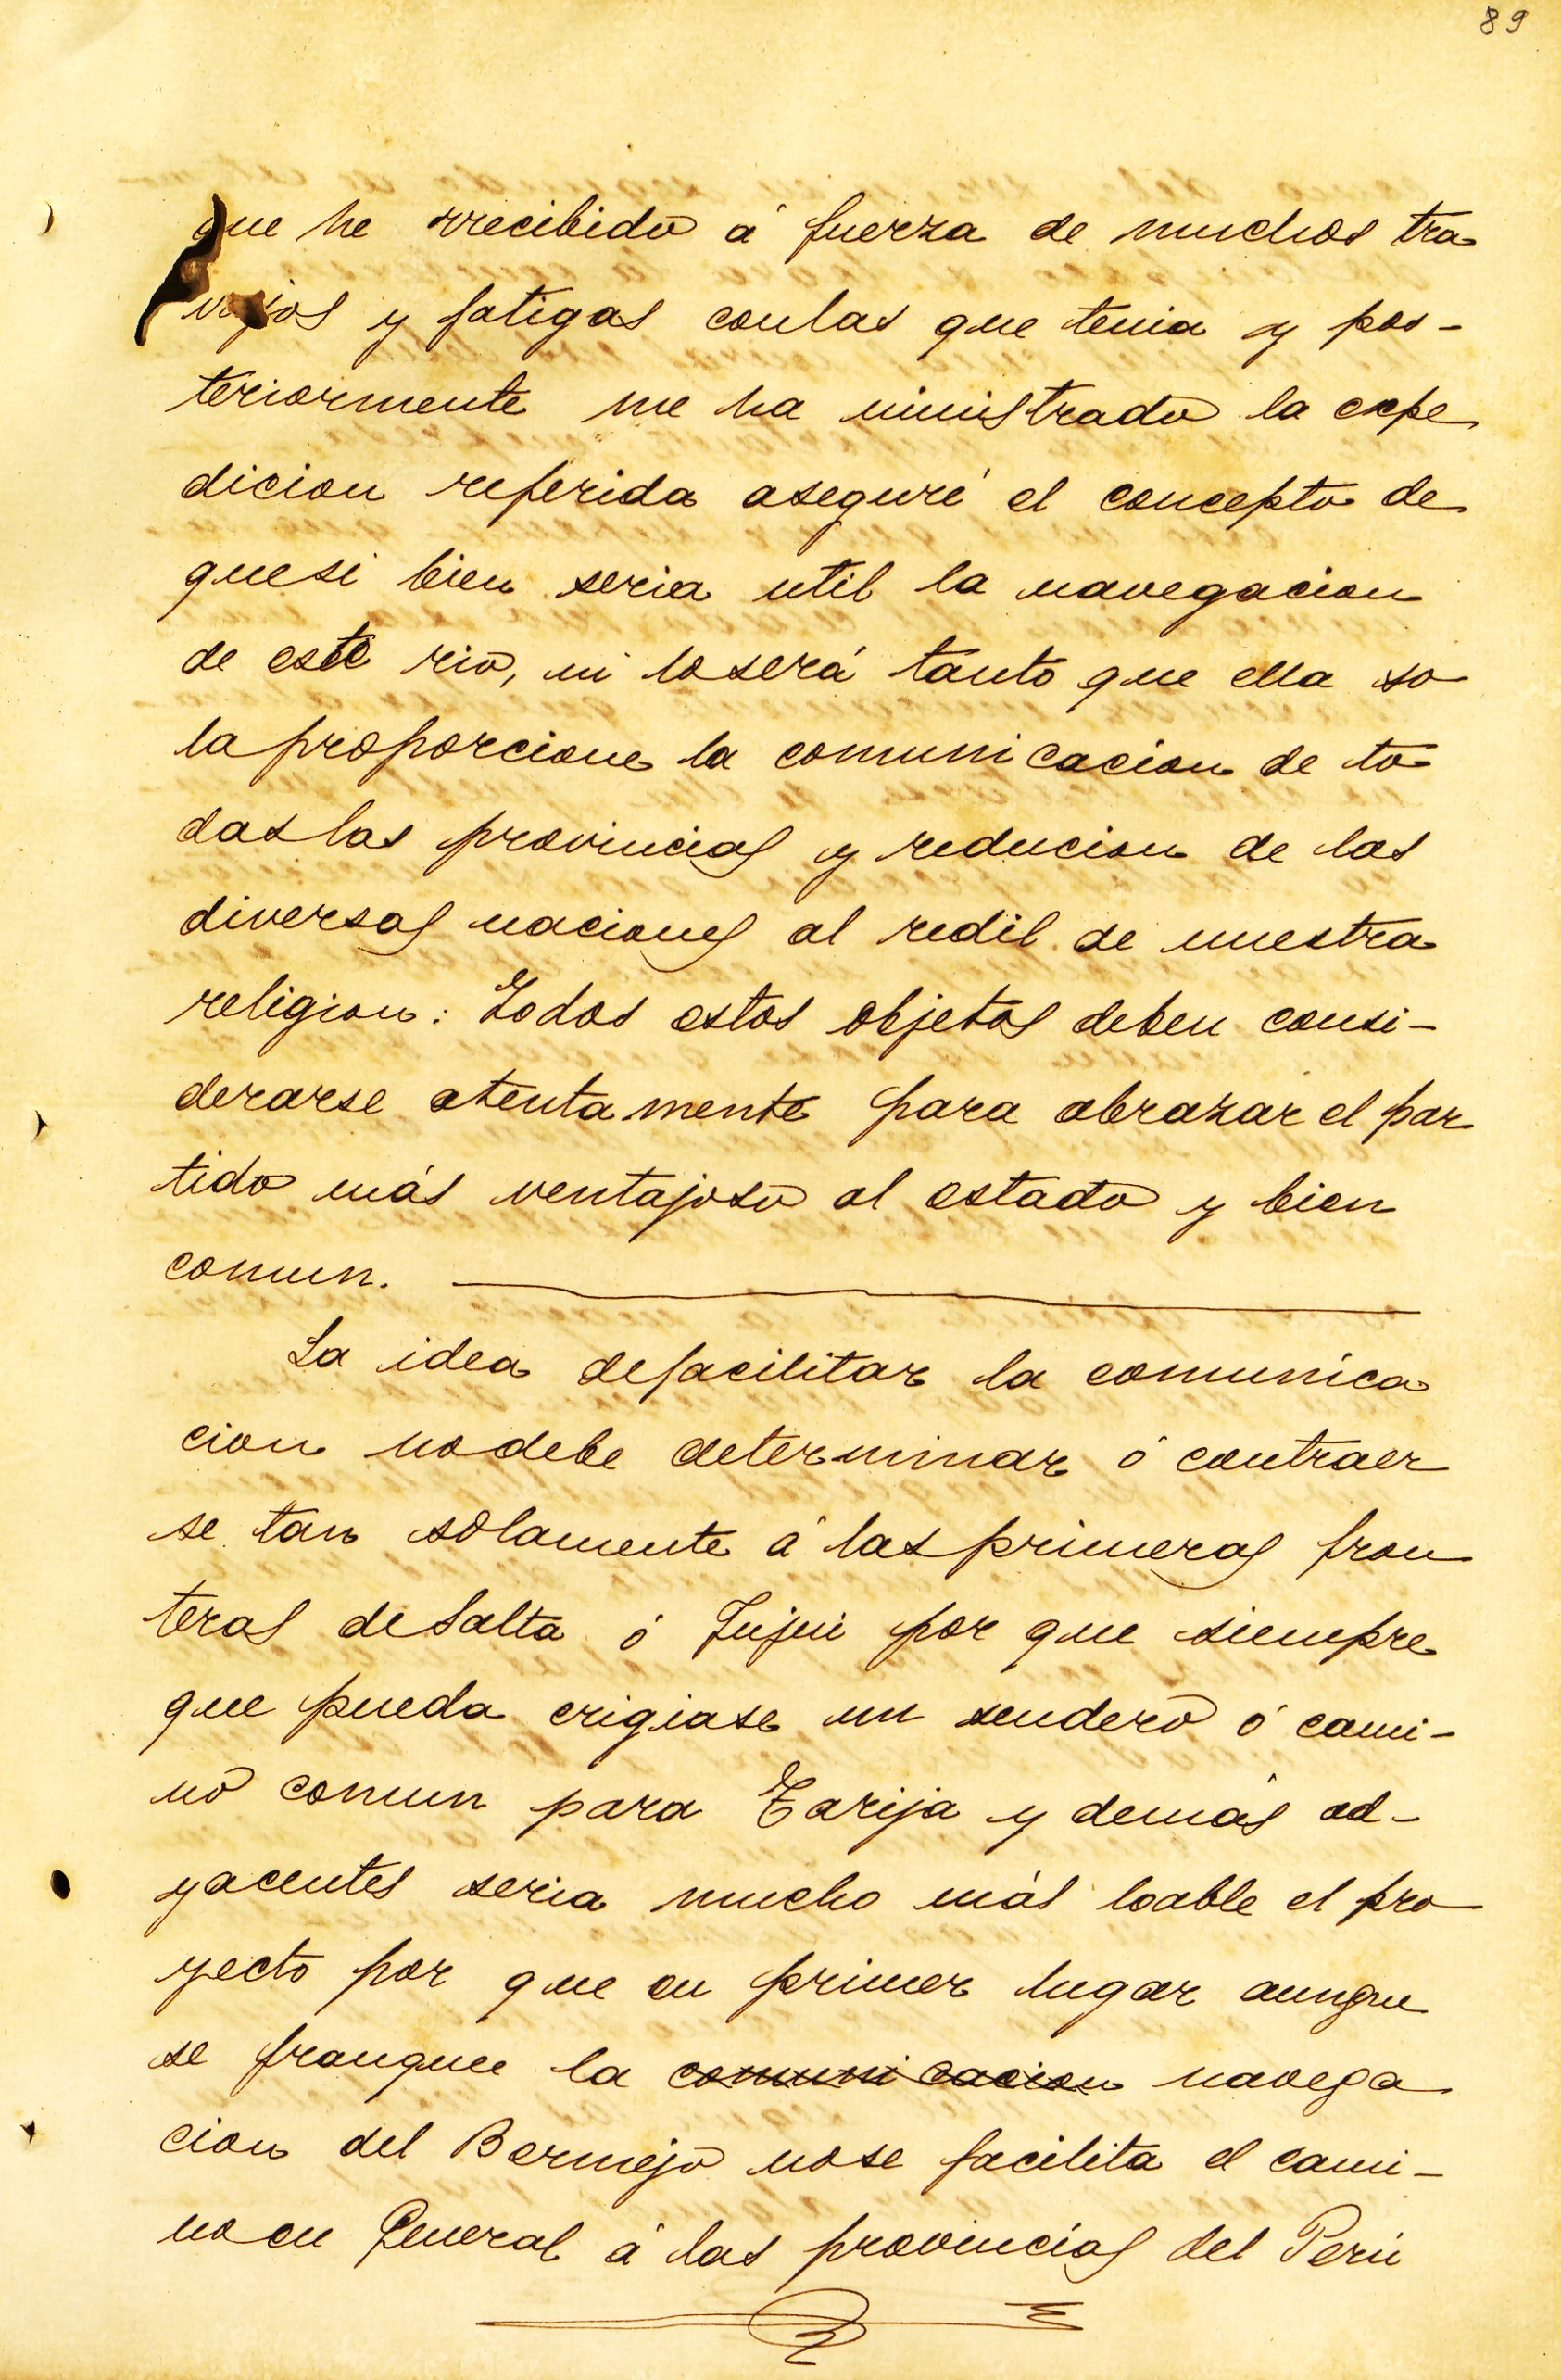 89
que he rrecibido á fuerza de muchos tra
vajos y fatigas conlas que tenia y pos-
teriormente me ha ministrado la expe
dicion referida aseguré el concepto de
quesi bien seria util la navegacion
de este rio, ni loserá tanto que ella so
la proporcione la comunicacion de to
daslas provincias y reducion de las
diversas naciones al redil de nuestra
religion: Todos estos objetos deben consi-
derarse atentamente para abrazar el par
tido más ventajoso al estado y bien
comun.
La idea defacilitar la comunica
cion nodebe determinar ó contraer
se tan solamente á las primeras fron
teras deSalta ó Jujui por que siempre
que pueda erigiase un sendero ó cami-
no comun para Tarija y demás ad-
yacentes seria mucho más loable el pro
yecto por que en primer lugar aunque
se franquee la comunicacion navega
cion del Bermejo nose facilita el cami-
no en General á las provincias del Perú